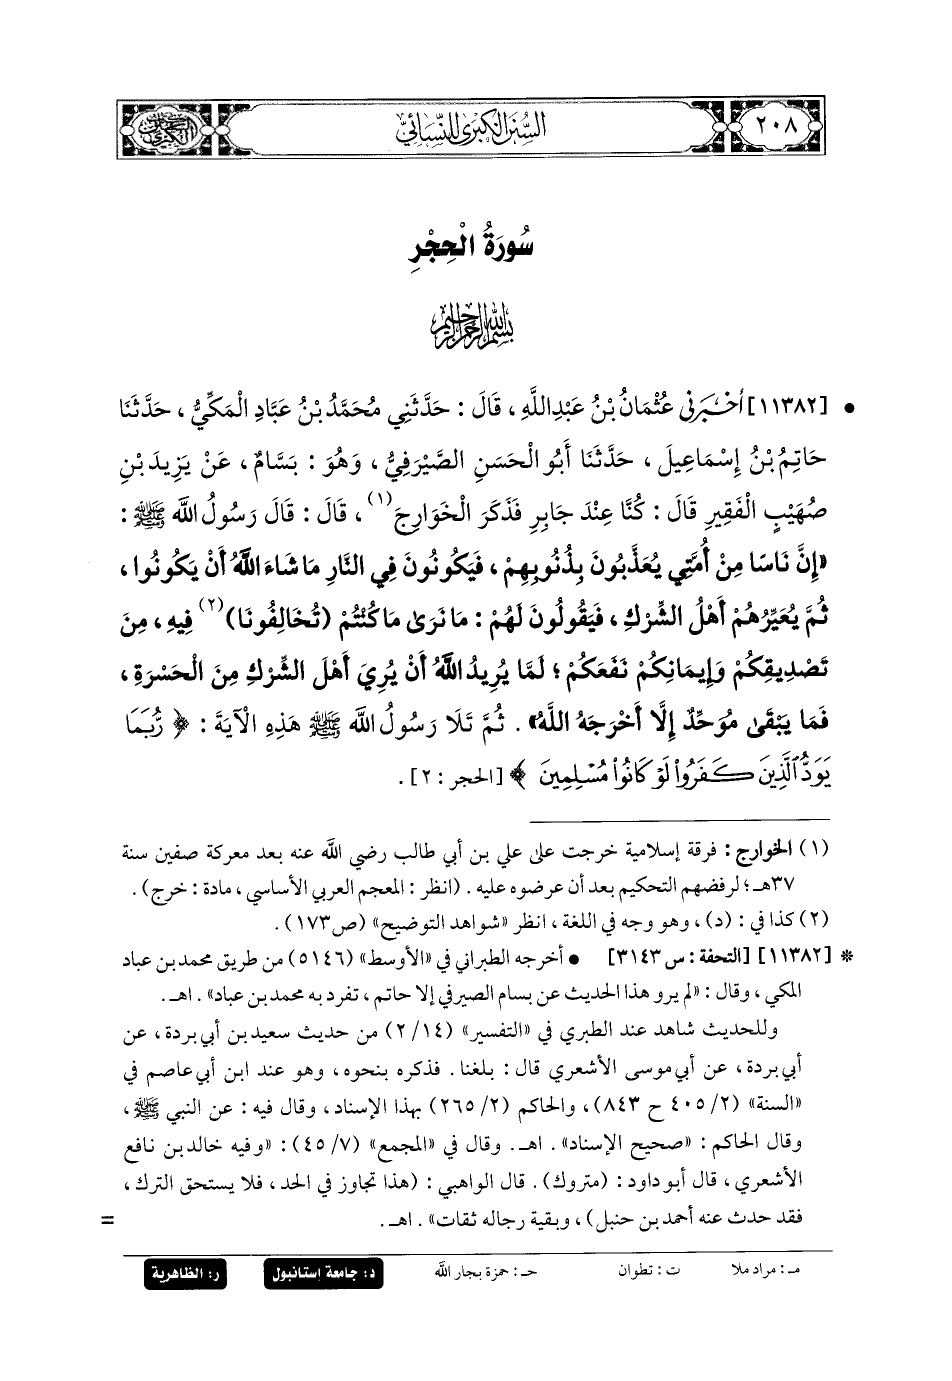 ٢٠٨
السنن الكبرى للنسائي
سُورَةُ الْحِجْرِ
بسم الله الرحمن الرحيم
• [١١٣٨٢] أَخْبَرَنِي عُثْمَانُ بْنُ عَبْدِاللَّهِ، قَالَ: حَدَّثَنِي مُحَمَّدُ بْنُ عَبَّادٍ الْمَكِّيُّ، حَدَّثَنَا
حَاتِمُ بْنُ إِسْمَاعِيلَ، حَدَّثَنَا أَبُو الْحَسَنِ الصَّيْرَفِيُّ، وَهُوَ: بَسَّامٌ، عَنْ يَزِيدَ بْنِ
صُهَيْبٍ الْفَقِيرِ قَالَ: كُنَّا عِنْدَ جَابِرٍ فَذَكَرَ الْخَوَارِجَ (١)، قَالَ: قَالَ رَسُولُ اللَّه ﷺ:
«إِنَّ نَاسًا مِنْ أُمَّتِي يُعَذَّبُونَ بِذُنُوبِهِمْ، فَيَكُونُونَ فِي النَّارِ مَا شَاءَ اللَّهُ أَنْ يَكُونُوا،
ثُمَّ يُعَيِّرُهُمْ أَهْلُ الشِّرْكِ، فَيَقُولُونَ لَهُمْ: مَا نَرَىٰ مَا كُنْتُمْ (تُخَالِفُونَا) (٢) فِيهِ، مِنَ
تَصْدِيقِكُمْ وَإِيمَانِكُمْ نَفَعَكُمْ؛ لَمَّا يُرِيدُ اللَّهُ أَنْ يُرِيَ أَهْلَ الشِّرْكِ مِنَ الْحَسْرَةِ،
فَمَا يَبْقَىٰ مُوَحِّدٌ إِلَّا أَخْرَجَهُ اللَّهُ». ثُمَّ تَلَا رَسُولُ اللَّه ﷺ هَذِهِ الْآيَةَ: ﴿رُّبَمَا
يَوَدُّ ٱلَّذِينَ كَفَرُواْ لَوْ كَانُواْ مُسْلِمِينَ﴾ [الحجر: ٢].
(١) الخوارج: فرقة إسلامية خرجت على علي بن أبي طالب رضي الله عنه بعد معركة صفين سنة
٣٧هـ؛ لرفضهم التحكيم بعد أن عرضوه عليه. (انظر: المعجم العربي الأساسي، مادة: خرج).
(٢) كذا في: (د)، وهو وجه في اللغة، انظر «شواهد التوضيح» (ص١٧٣).
* [١١٣٨٢] [التحفة: س ٣١٤٣] • أخرجه الطبراني في «الأوسط» (٥١٤٦) من طريق محمد بن عباد
المكي، وقال: «لم يرو هذا الحديث عن بسام الصيرفي إلا حاتم، تفرد به محمد بن عباد». اهـ.
وللحديث شاهد عند الطبري في «التفسير» (٢/١٤) من حديث سعيد بن أبي بردة، عن
أبي بردة، عن أبي موسى الأشعري قال: بلغنا. فذكره بنحوه، وهو عند ابن أبي عاصم في
«السنة» (٤٠٥/٢ ح ٨٤٣)، والحاكم (٢٦٥/٢) بهذا الإسناد، وقال فيه: عن النبي ﷺ،
وقال الحاكم: «صحيح الإسناد». اهـ. وقال في «المجمع» (٤٥/٧): «وفيه خالد بن نافع
الأشعري، قال أبو داود: (متروك). قال الواهبي: (هذا تجاوز في الحد، فلا يستحق الترك،
فقد حدث عنه أحمد بن حنبل)، وبقية رجاله ثقات». اهـ.
=
مـ: مراد ملا ت: تطوان حـ: حمزة بجار الله د: جامعة إستانبول ر: الظاهرية